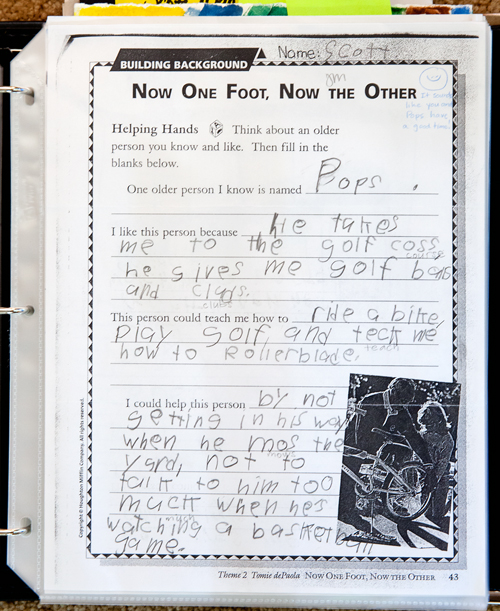 Name: Scott
BUILDING BACKGROUND
NOW ONE FOOT, NOW THE OTHER
Helping Hands Think about an older
person you know and like. Then fill in the
blanks below.
One older person I know is named Pops.
I like this person because he takes
me to the golf coss
course
he gives me golf balls
and clays.
clubs
This person could teach me how to ride a bike,
play golf, and teck me
teach
how to Rollerblade.
I could help this person by not
getting in his way
when he mos the
mows
yard, not to
talk to him too
muck when hes
much
watching a basketball
game.
Copyright © Houghton Mifflin Company. All rights reserved.
Theme 2 Tomie dePaola NOW ONE FOOT, NOW THE OTHER 43